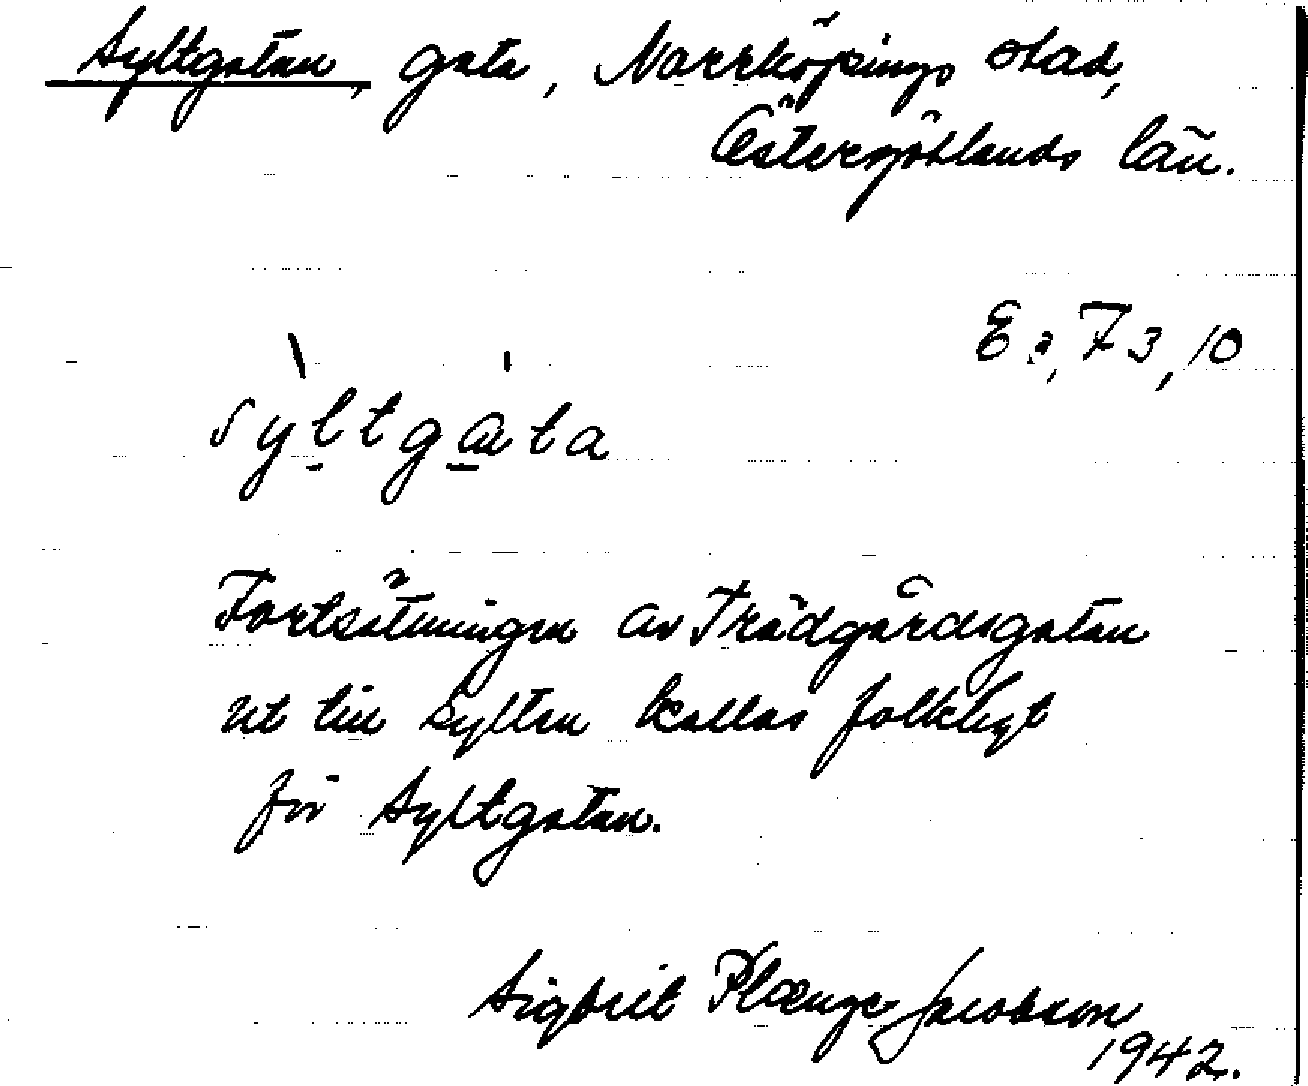 Syltgatan, gata, Norrköpings stad,
Östergötlands län.
Ea, 73, 10
sỳltgɑ̍ta
Fortsättningen av Trädgårdsgatan
ut till Sylten kallas folkligt
för Syltgatan.
Sigbrit Plænge Jacobson
1942.